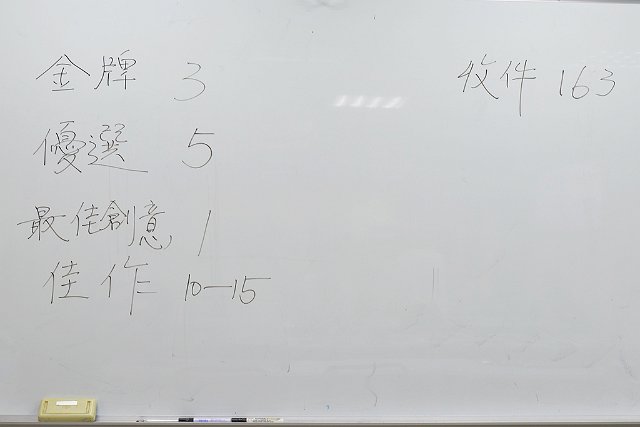 金牌 3
收件 163
優選 5
最佳創意 1
佳作 10—15